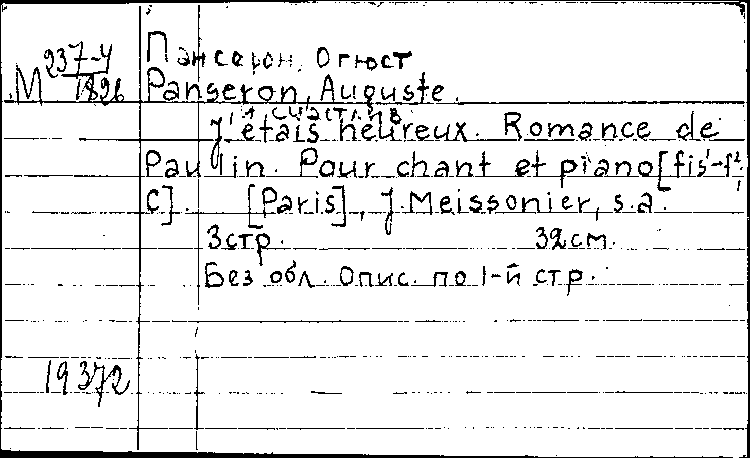 М 237-4/1826
Пансерон, Огюст
Panseron, Auguste.
Я счастлив
J'étais heureux. Romance de
Paulin. Pour chant et piano [fis¹-f²;
C]. [Paris], J. Meissonier, s.a.
3 стр. 32 см.
Без обл. Опис. по 1-й стр.
19372